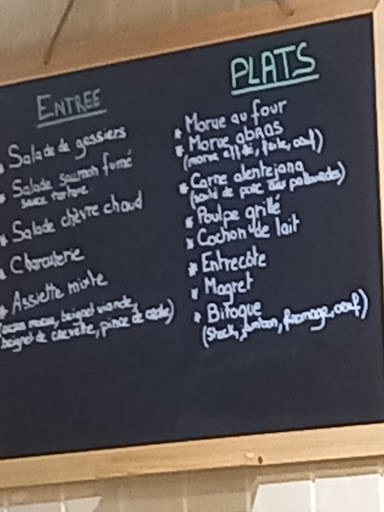 ENTREE
* Salade de gessiers
* Salade saumon fumé
sauce tartare
* Salade chèvre chaud
* Charcuterie
* Assiette mixte
beignet viande,
beignet de crevette, pince de crabe)
PLATS
* Morue au four
* Morue abras
(morue oeuf)
* Carne alentejana
(sauté de porc aux palourdes)
* Poulpe grillé
* Cochon de lait
* Entrecôte
* Magret
* Bitoque
(Steack, jambon, fromage, oeuf)